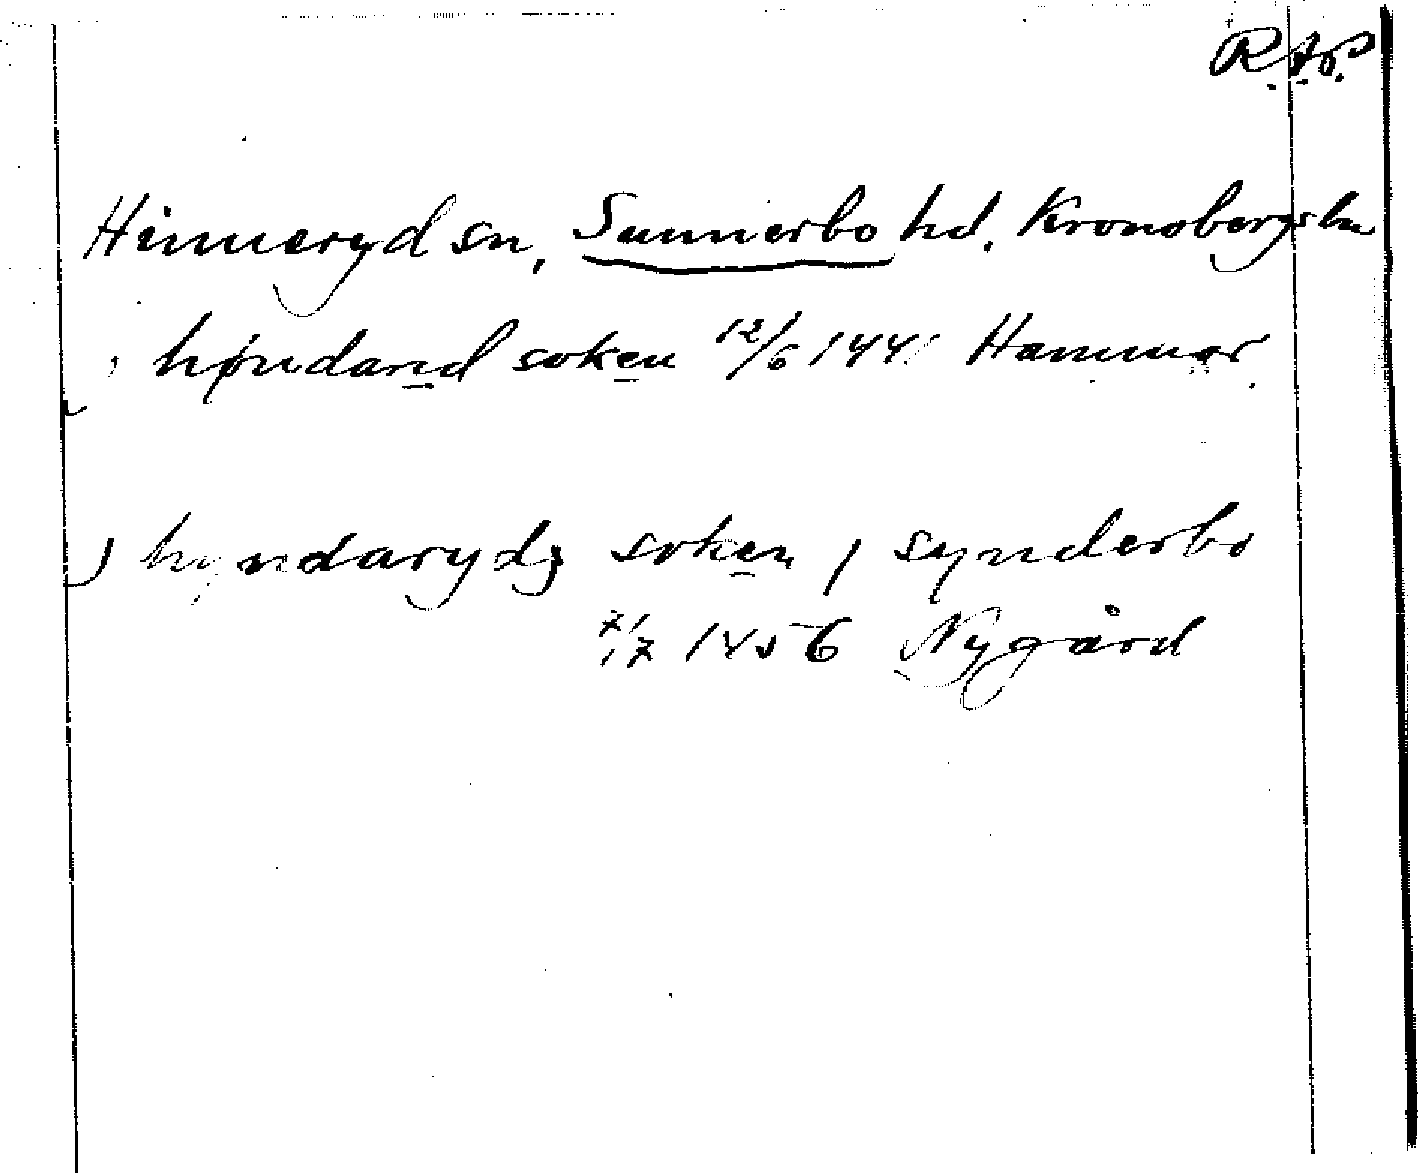 R.A.P.
Hinneryd sn, Sunnerbo hd. Kronobergs ln
i høndarid soken 12/6 1441 Hammar.
j hyndarydz soken j synderbo
7/7 1456 Nygård